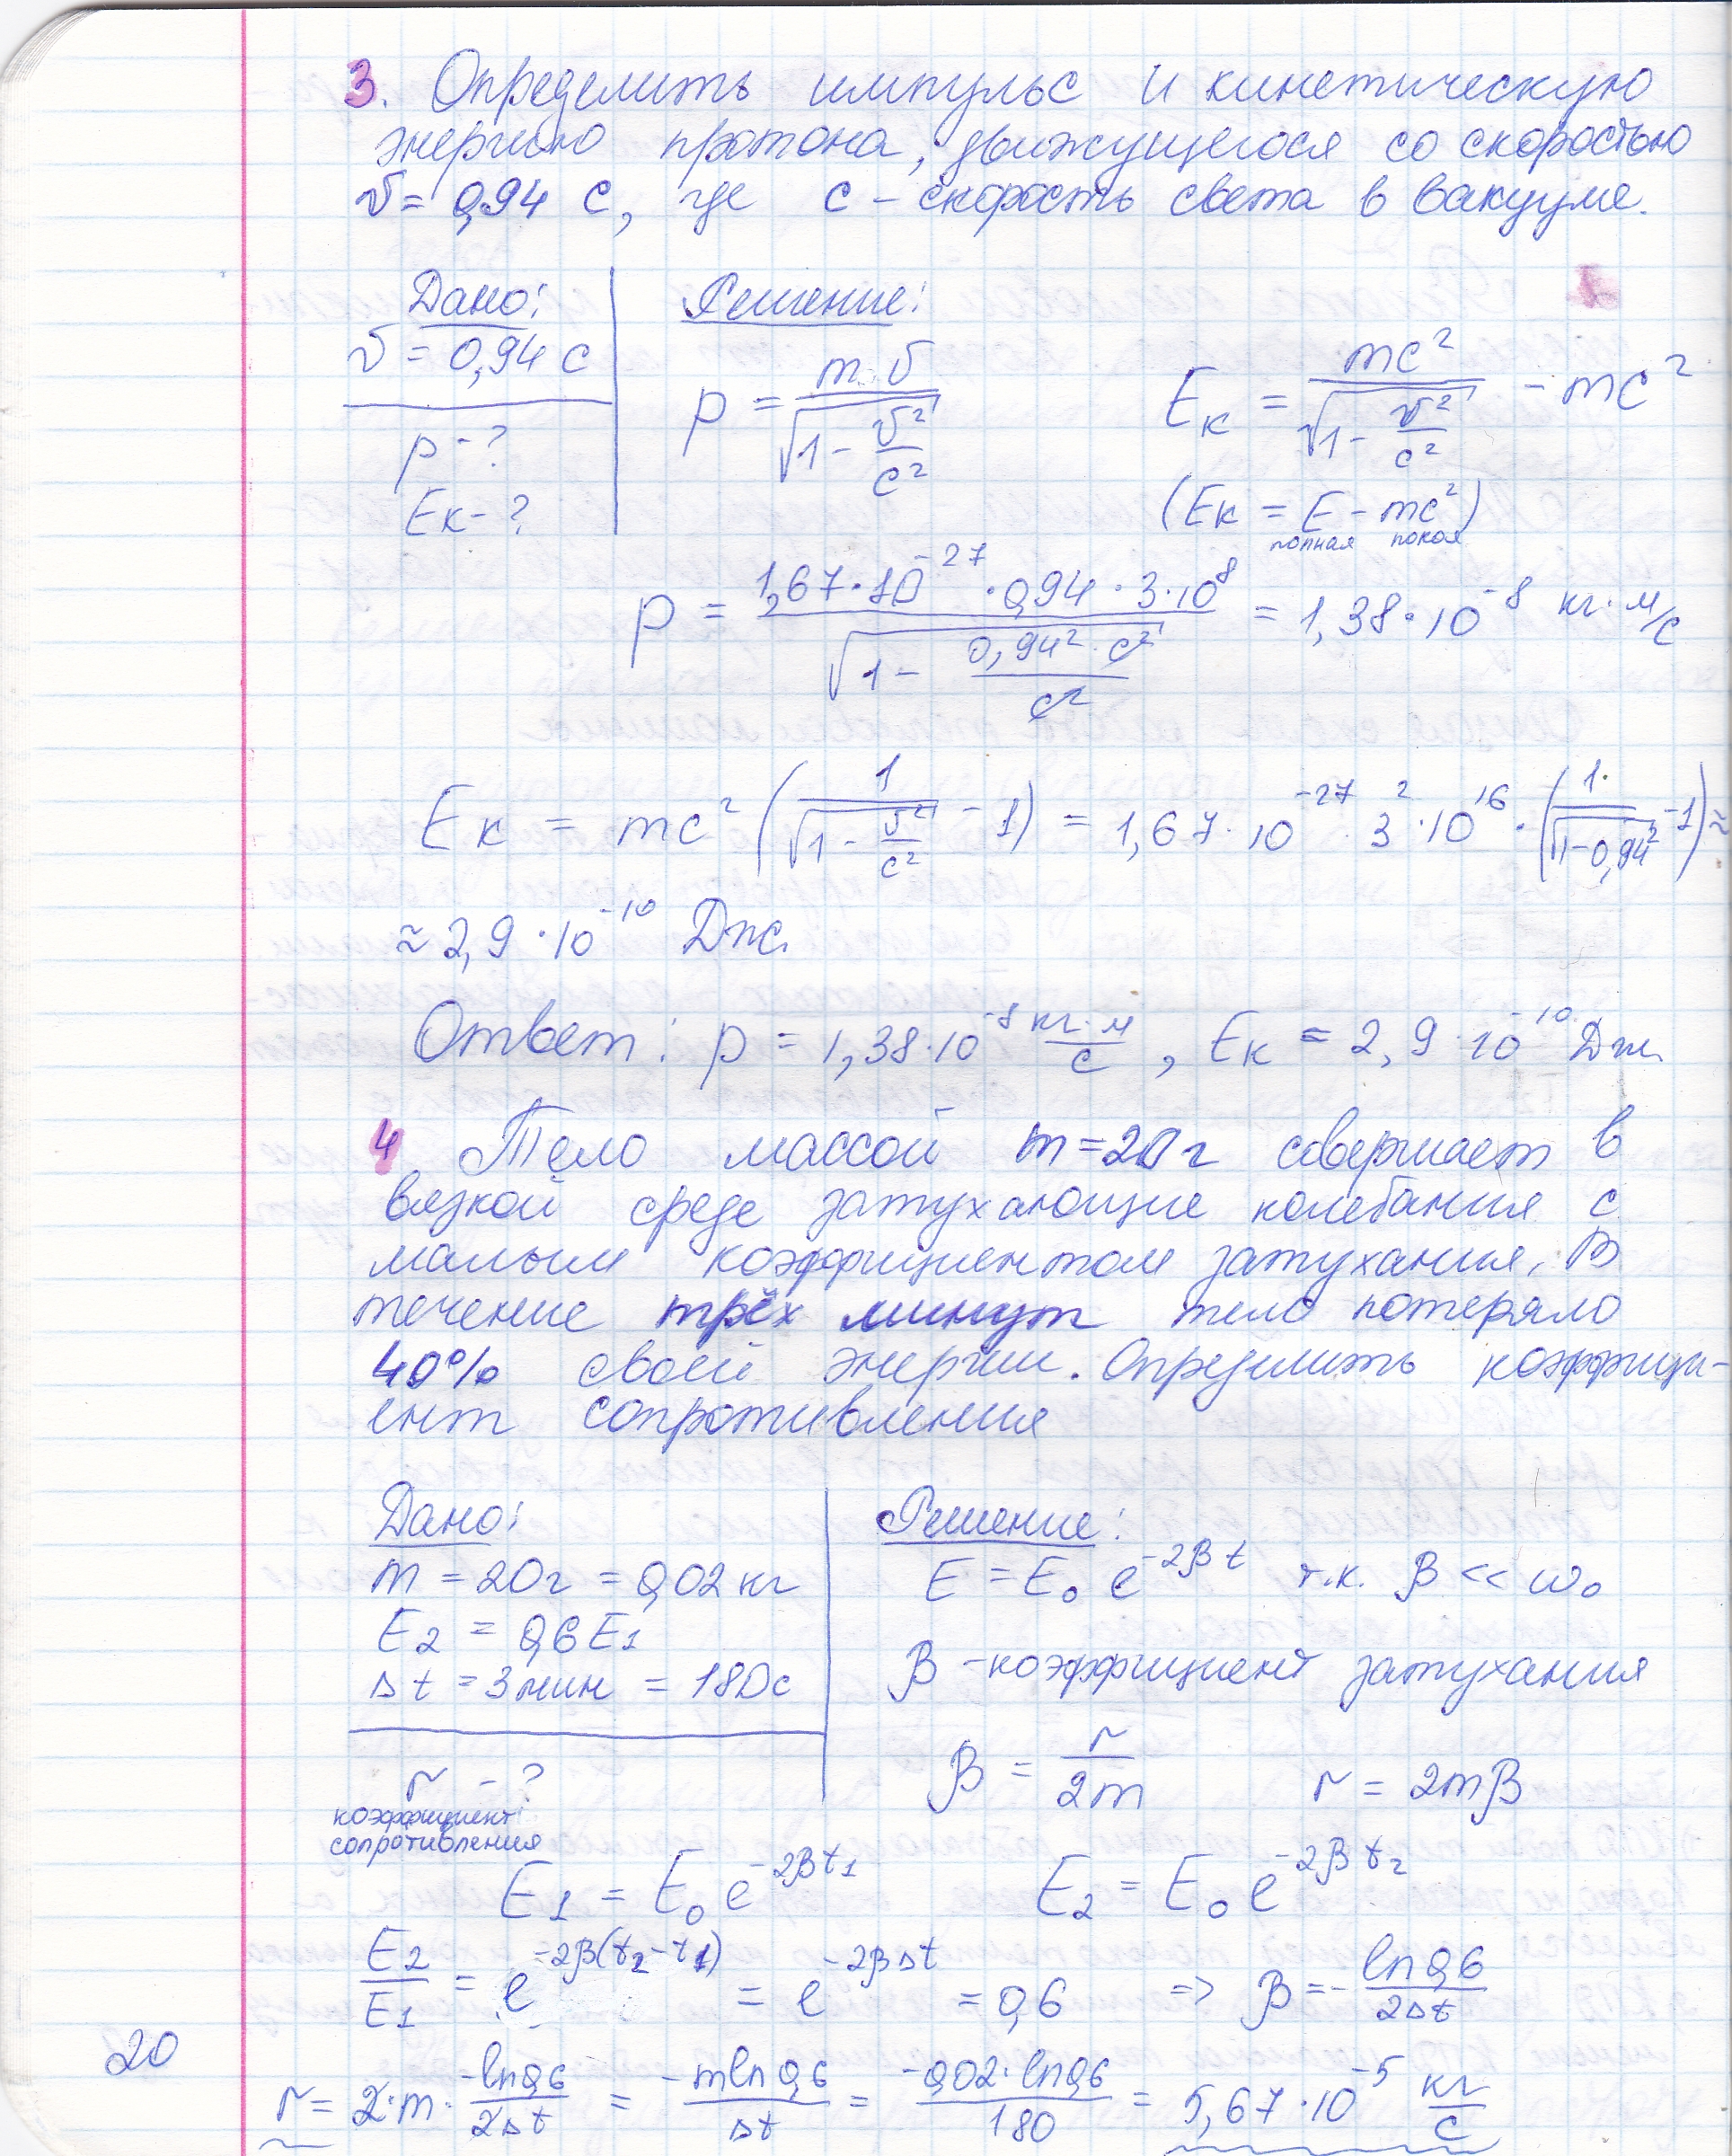 3. Определить импульс и кинетическую
энергию протона, движущегося со скоростью
v = 0,94 c, где c - скорость света в вакууме.
Дано:
v = 0,94 c
p - ?
Eк - ?
Решение:
p = m·v / √(1 - v²/c²)
Eк = mc² / √(1 - v²/c²) - mc²
(Eк = E - mc²)
полная покоя
p = 1,67·10⁻²⁷ · 0,94 · 3·10⁸ / √(1 - 0,94²·c²/c²) = 1,38·10⁻⁸ кг·м/с
Eк = mc² (1/√(1 - v²/c²) - 1) = 1,67·10⁻²⁷ · 3² · 10¹⁶ · (1/√(1-0,94²) - 1) ≈
≈ 2,9·10⁻¹⁰ Дж.
Ответ: p = 1,38·10⁻⁸ кг·м/с, Eк = 2,9·10⁻¹⁰ Дж.
4. Тело массой m = 20 г совершает в
вязкой среде затухающие колебания с
малым коэффициентом затухания. В
течение трёх минут тело потеряло
40% своей энергии. Определить коэффици-
ент сопротивления
Дано:
m = 20 г = 0,02 кг
E₂ = 0,6 E₁
Δt = 3 мин = 180 с
r - ?
коэффициент
сопротивления
Решение:
E = E₀ e^(-2βt) т.к. β << ω₀
β - коэффициент затухания
β = r/2m r = 2mβ
E₁ = E₀ e^(-2βt₁) E₂ = E₀ e^(-2βt₂)
E₂/E₁ = e^(-2β(t₂-t₁)) = e^(-2βΔt) = 0,6 => β = - ln0,6/2Δt
r = 2·m · -ln0,6/2Δt = -mln0,6/Δt = -0,02·ln0,6/180 = 5,67·10⁻⁵ кг/с
20